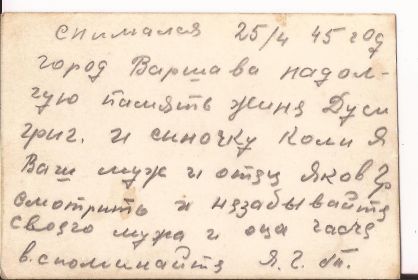 снимался 25/4 45 год
город Варшава надол-
гую память жине Дуси
григ. и синочку Коли Я
Ваш муж и отец Яков Гр
смотрить и незабывайте
своего мужа и оца часче
в.споминайте Я. Г.